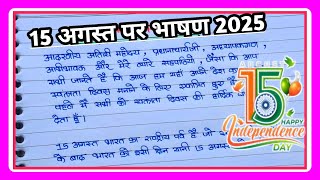 15 अगस्त पर भाषण 2025
आदरणीय अतिथी महोदय, प्रधानाचार्यजी, अध्यापकगण,
अभिभावक और मेरे प्यारे सहपाठियो, जैसा कि आप
सभी जानते हैं कि आज हम यहाँ अपने देश का
स्वतन्त्रता दिवस मनाने के लिए एकत्रित हुए हैं
पहले मैं सभी को स्वतन्त्रता दिवस की हार्दिक
देता हूँ।
15 अगस्त भारत का राष्ट्रीय पर्व है जो
के बाद भारत को इसी दिन यानी 15 अगस्त
AUGUST
15
HAPPY
Independence
DAY